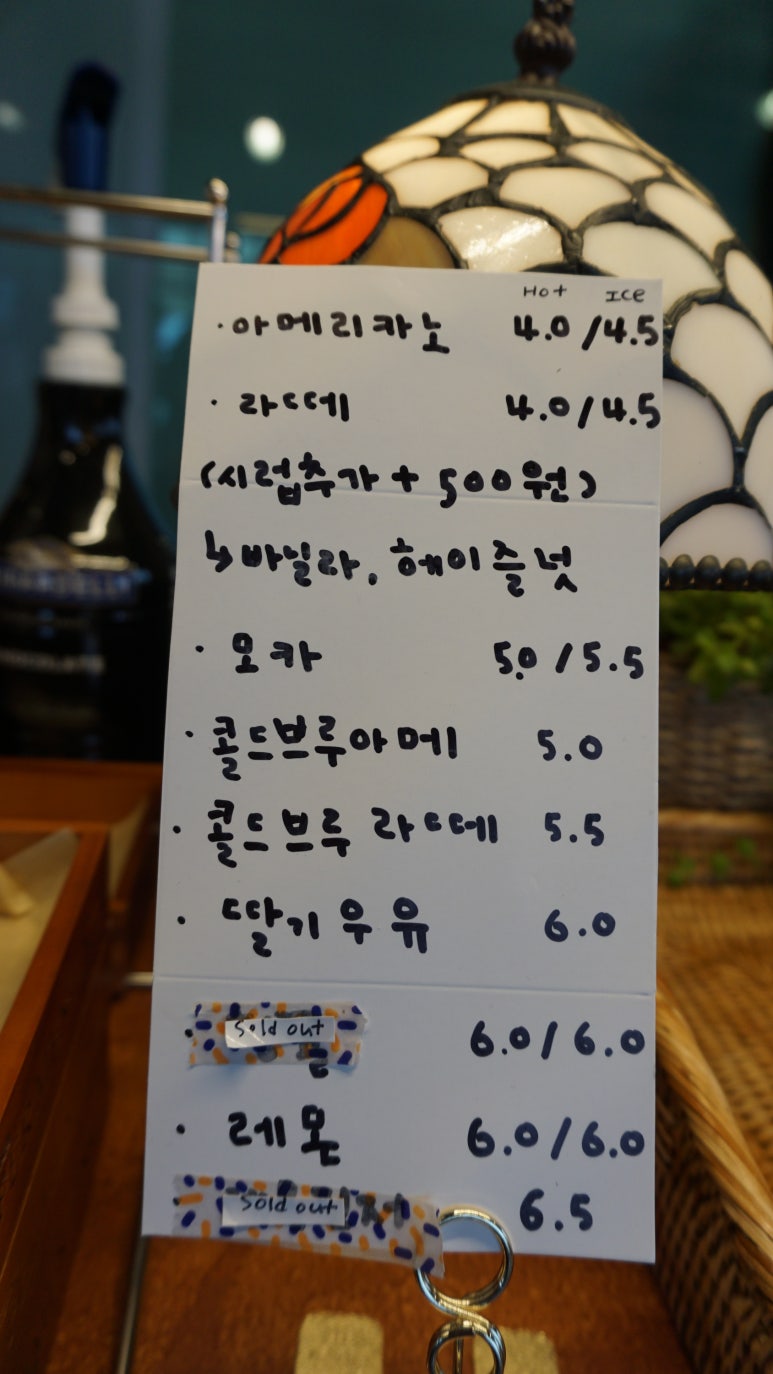 Hot ICE
· 아메리카노 4.0 / 4.5
· 라떼 4.0 / 4.5
(시럽추가 + 500원)
↳ 바닐라, 헤이즐넛
· 모카 5.0 / 5.5
· 콜드브루아메 5.0
· 콜드브루 라떼 5.5
· 딸기우유 6.0
· sold out 6.0 / 6.0
· 레몬 6.0 / 6.0
· sold out 6.5